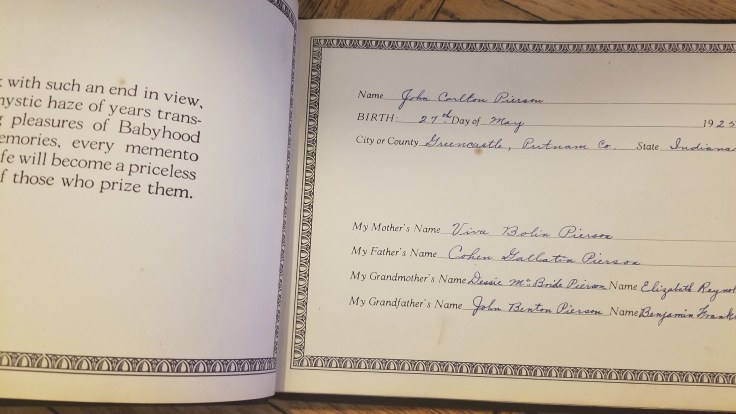 with such an end in view,
mystic haze of years trans-
pleasures of Babyhood
emories, every memento
fe will become a priceless
f those who prize them.
Name John Carlton Pierson
BIRTH: 27th Day of May 1925
City or County Greencastle, Putnam Co. State Indiana
My Mother's Name Viva Bolin Pierson
My Father's Name Cohen Gallatin Pierson
My Grandmother's Name Dessie McBride Pierson Name Elizabeth Reynol
My Grandfather's Name John Benton Pierson Name Benjamin Frankl